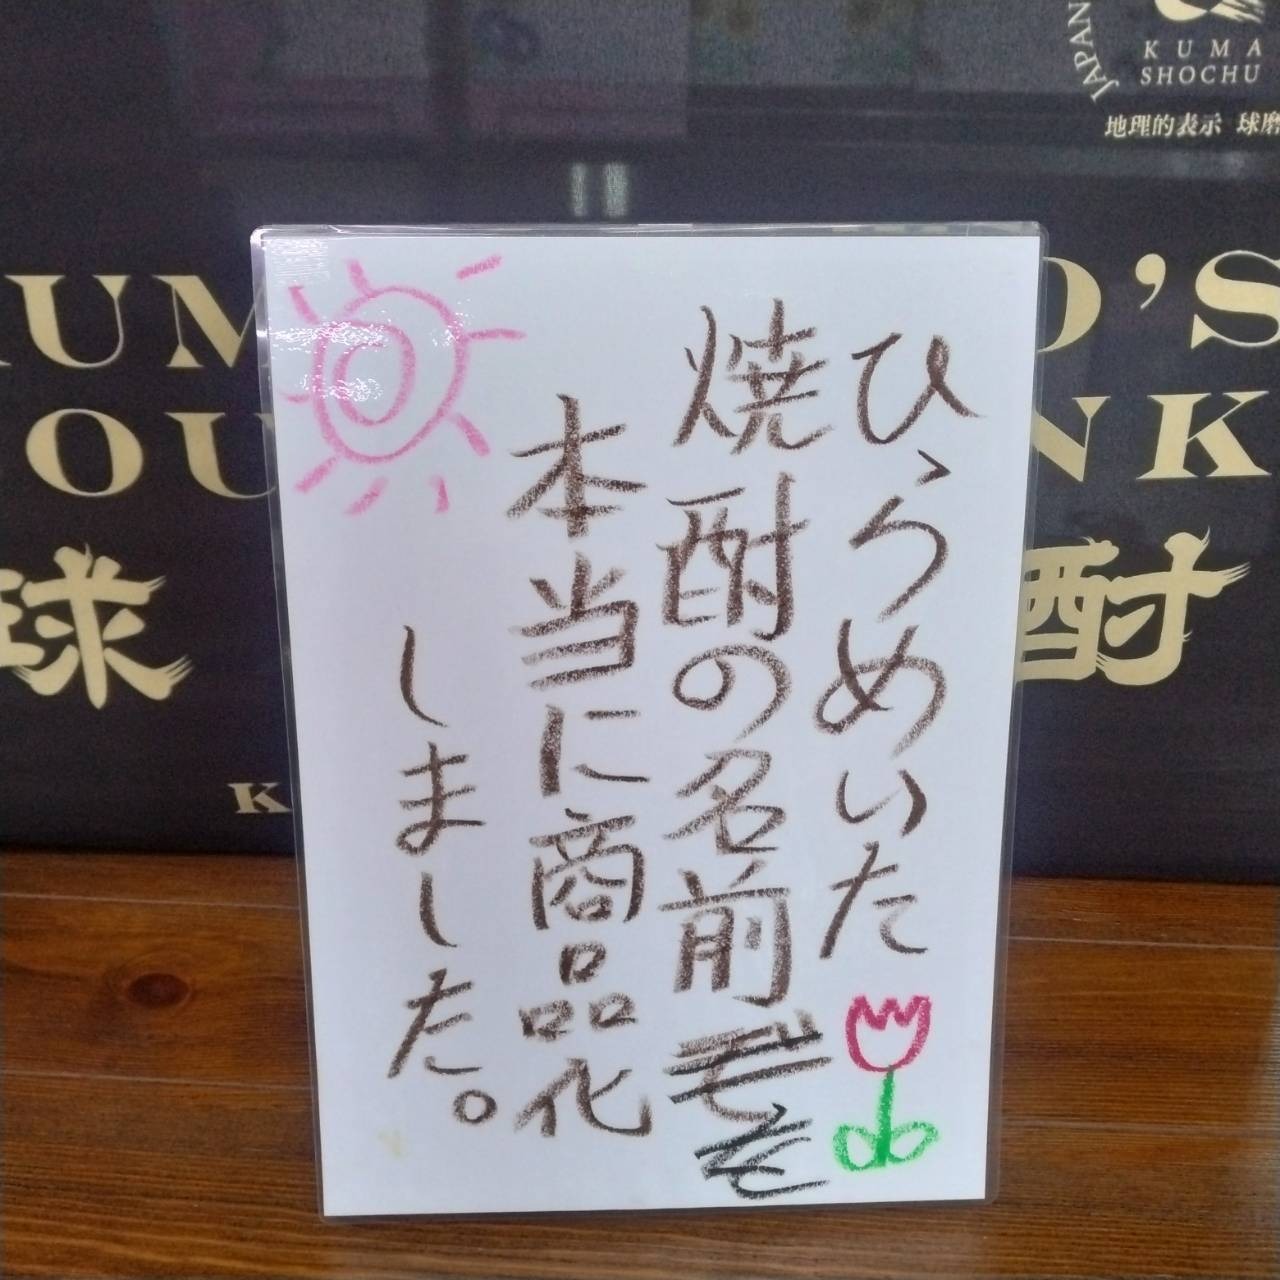 JAPAN
KUMA
SHOCHU
地理的表示 球磨
KUM O'S
OU NK
球 酎
K
ひらめいた
焼酎の名前
本当に商品化
しました。